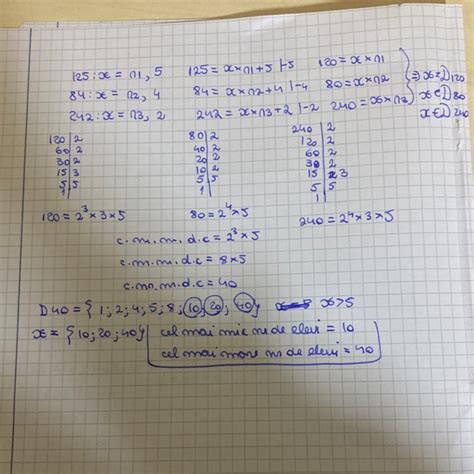 125 : x = n1, 5 125 = x × n1 + 5 |-5 120 = x × n1
84 : x = n2, 4 84 = x × n2 + 4 |-4 80 = x × n2 ⇒ x ∈ D120
242 : x = n3, 2 242 = x × n3 + 2 |-2 240 = x × n3 x ∈ D80
x ∈ D240
120 | 2 80 | 2 240 | 2
60 | 2 40 | 2 120 | 2
30 | 2 20 | 2 60 | 2
15 | 3 10 | 2 30 | 2
5 | 5 5 | 5 15 | 3
1 | 1 | 5 | 5
1 |
120 = 2³ × 3 × 5 80 = 2⁴ × 5 240 = 2⁴ × 3 × 5
c.m.m.d.c = 2³ × 5
c.m.m.d.c = 8 × 5
c.m.m.d.c = 40
D40 = { 1; 2; 4; 5; 8; 10; 20; 40} x > 5
x = {10; 20; 40} cel mai mic nr de elevi = 10
cel mai mare nr de elevi = 40